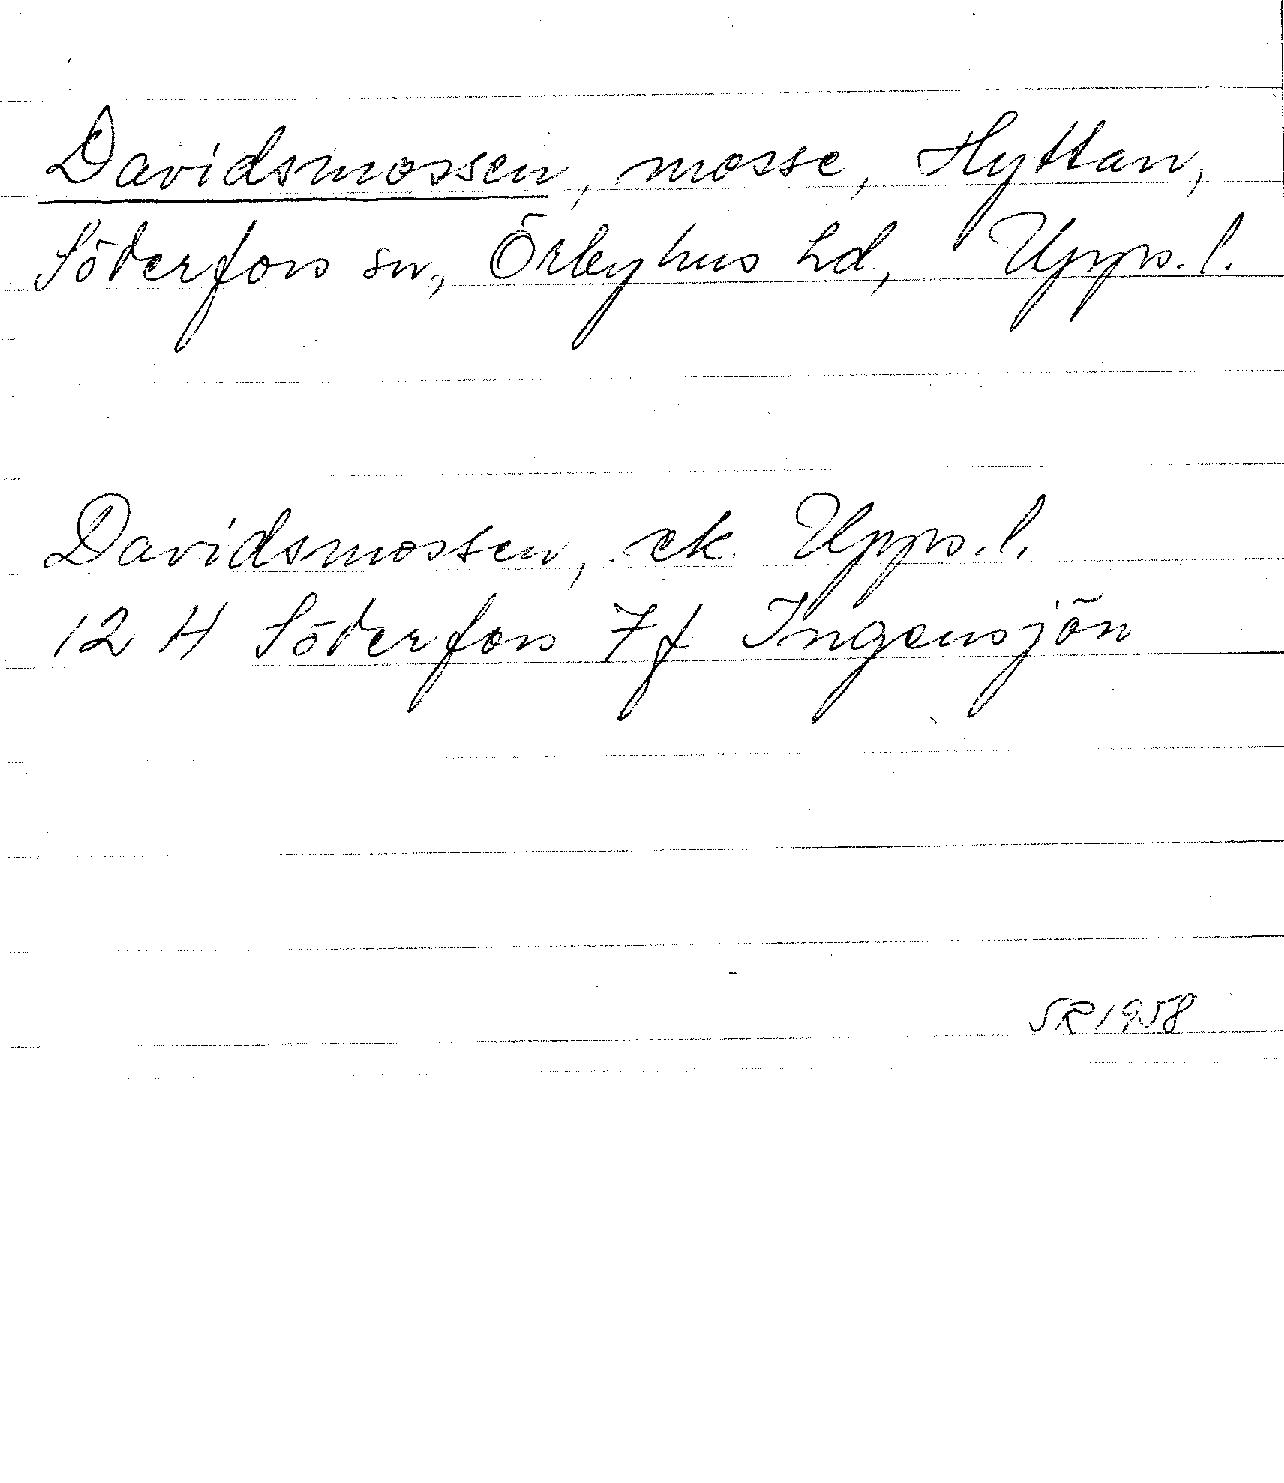 Davidsmossen, mosse, Hyttan,
Söderfors sn, Örbyhus hd, Upps. l.
Davidsmossen, ek. Upps. l.
12 H Söderfors 7f Ingensjön
SR 1958